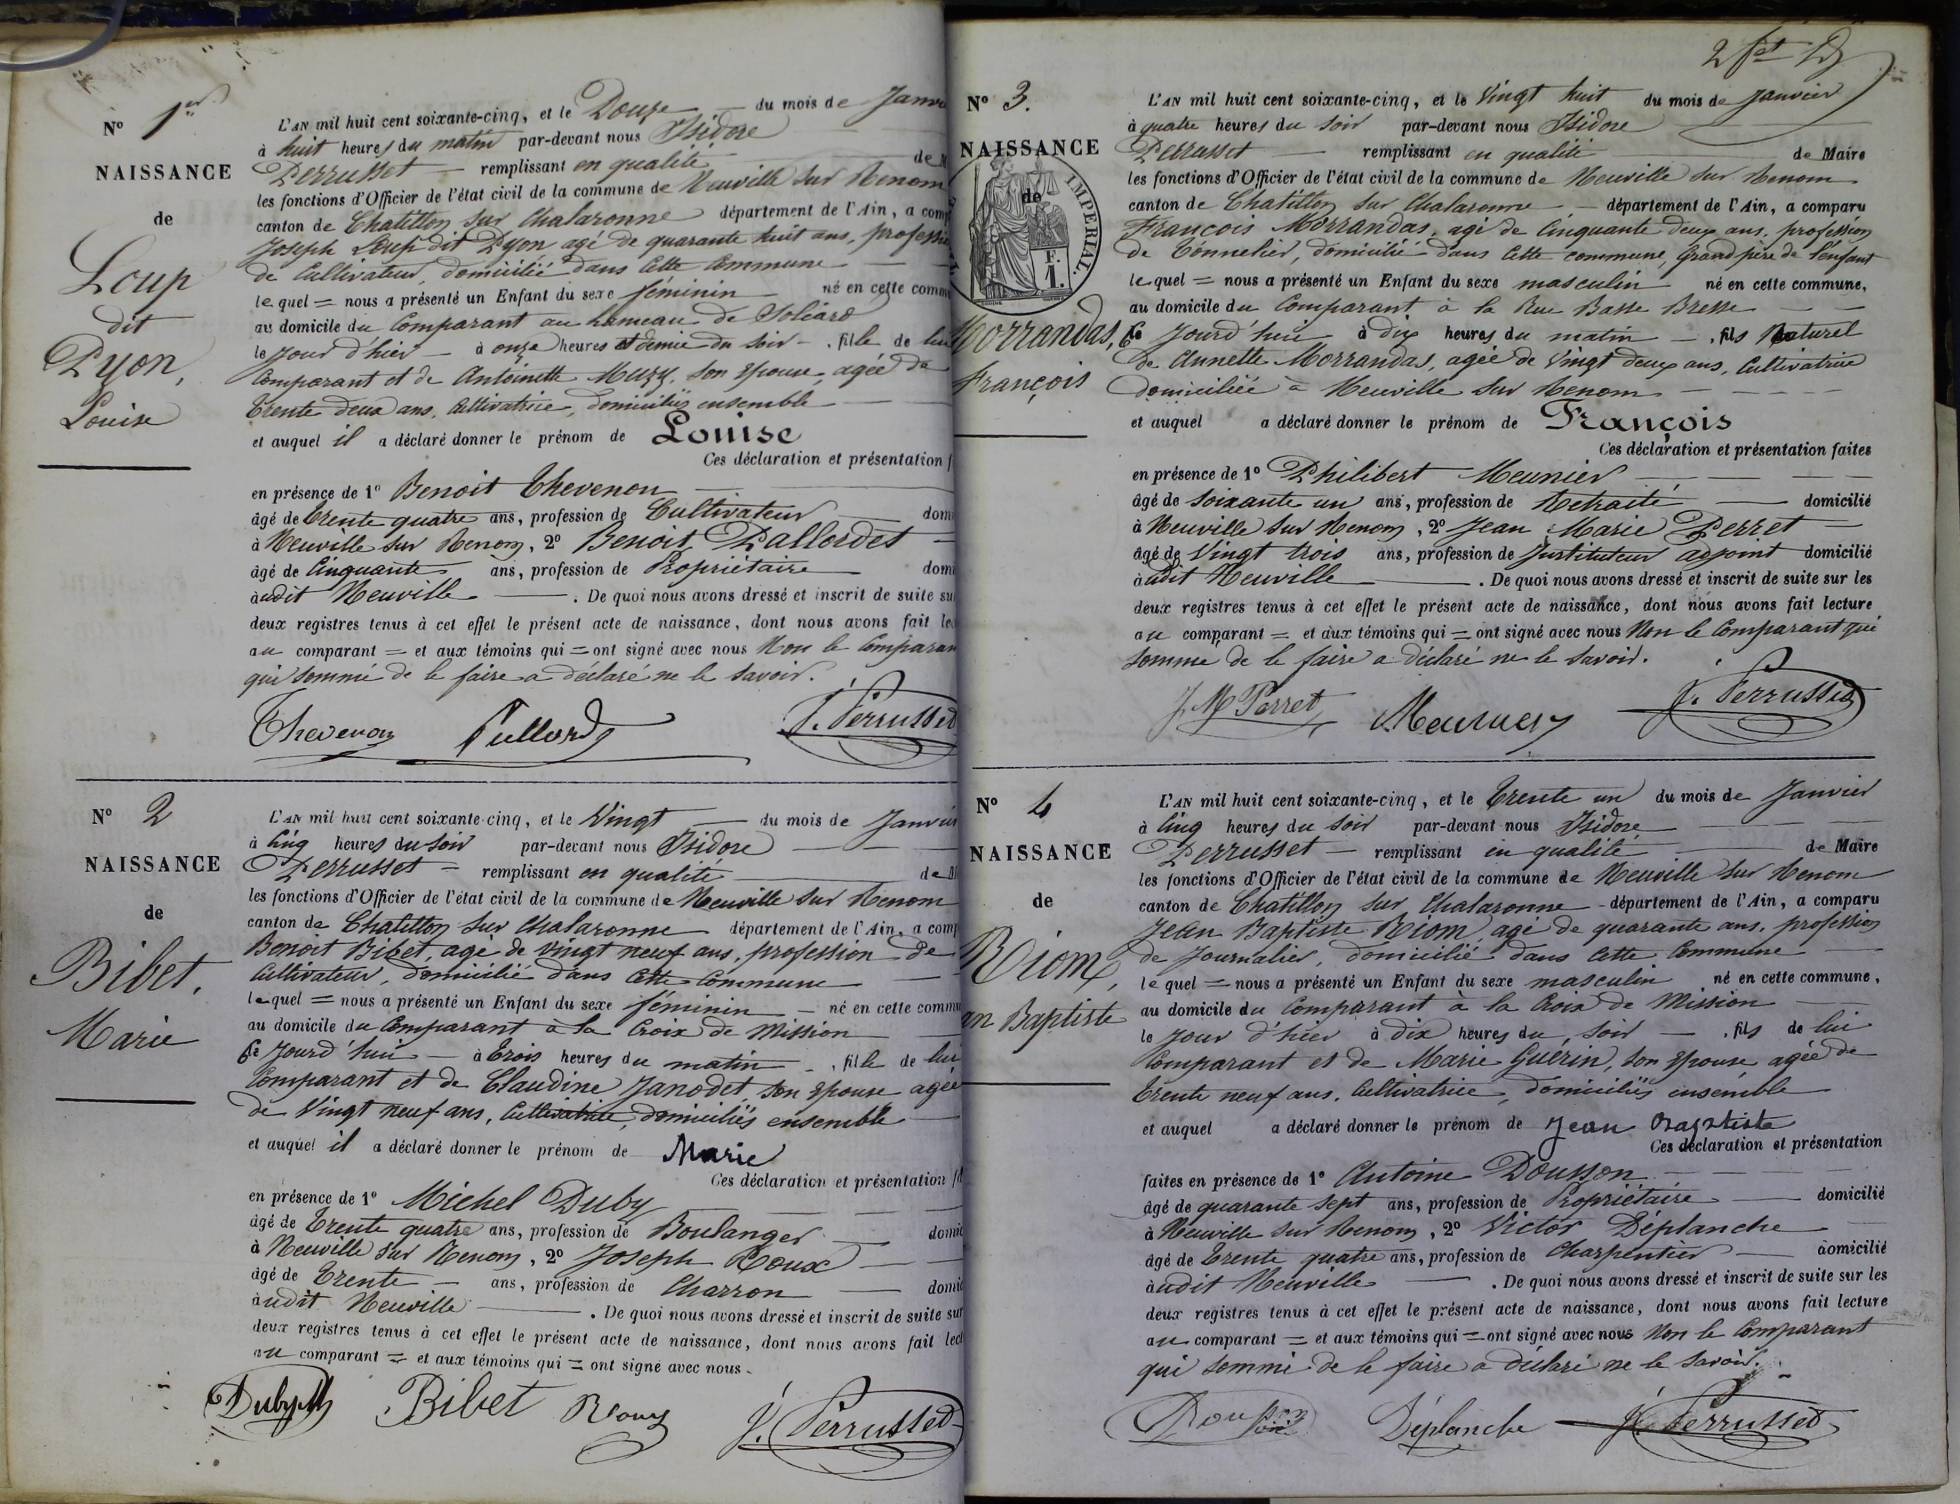 N° 1er
NAISSANCE
de
Loup
dit
Pyon,
Louise
L'AN mil huit cent soixante-cinq, et le Douze du mois de Janv
à huit heures du matin par-devant nous Isidore
Perrusset remplissant en qualité de M
les fonctions d'Officier de l'état civil de la commune de Neuville sur Renom
canton de Chatillon sur Chalaronne département de l'Ain, a comp
Joseph Loup dit Pyon, agé de quarante huit ans, professi
de Cultivateur, domicilié dans cette Commune
lequel = nous a présenté un Enfant du sexe féminin né en cette comm
au domicile du Comparant au hameau de
le jour d'hier à onze heures et demie du soir , fille de lui
Comparant et de Antoinette Muzy, son Epouse, agée de
trente deux ans, Cultivatrice, domiciliés ensemble
et auquel il a déclaré donner le prénom de Louise
Ces déclaration et présentation f
en présence de 1° Benoit Thevenon
âgé de trente quatre ans, profession de Cultivateur domi
à Neuville sur Renom, 2° Benoit Pallordet
âgé de Cinquante ans, profession de Propriétaire domi
àudit Neuville . De quoi nous avons dressé et inscrit de suite su
deux registres tenus à cet effet le présent acte de naissance, dont nous avons fait lec
au comparant = et aux témoins qui = ont signé avec nous Non le Comparan
qui sommé de le faire a déclaré ne le savoir.
Thevenon Pallord J. Perrusset
N° 2
NAISSANCE
de
Bibet,
Marie
L'AN mil huit cent soixante-cinq, et le Vingt du mois de Janvie
à Cinq heures du soir par-devant nous Isidore
Perrusset remplissant en qualité de M
les fonctions d'Officier de l'état civil de la commune de Neuville sur Renom
canton de Chatillon sur Chalaronne département de l'Ain, a comp
Benoit Bibet, agé de vingt neuf ans, profession de
Cultivateur, domicilié dans cette Commune
lequel = nous a présenté un Enfant du sexe féminin né en cette commu
au domicile du Comparant à la Croix de Mission
Ce jourd'hui à trois heures du matin , fille de lui
Comparant et de Claudine Janodet, son Epouse agée
de Vingt neuf ans, Cultivatrice, domiciliés ensemble
et auquel il a déclaré donner le prénom de Marie
Ces déclaration et présentation fa
en présence de 1° Michel Duby
âgé de trente quatre ans, profession de Boulanger domic
à Neuville sur Renom, 2° Joseph Roux
âgé de trente ans, profession de Charron domic
àudit Neuville . De quoi nous avons dressé et inscrit de suite sur
deux registres tenus à cet effet le présent acte de naissance, dont nous avons fait lect
au comparant = et aux témoins qui = ont signé avec nous.
Duby M Bibet Roux J. Perrusset
2 fet
N° 3.
NAISSANCE
de
IMPERIAL.
F.
1.
Morrandas,
François
L'AN mil huit cent soixante-cinq, et le Vingt huit du mois de Janvier
à quatre heures du soir par-devant nous Isidore
Perrusset remplissant en qualité de Maire
les fonctions d'Officier de l'état civil de la commune de Neuville sur Renom
canton de Chatillon sur Chalaronne département de l'Ain, a comparu
François Morrandas, agé de Cinquante deux ans, profession
de Tonnelier, domicilié dans cette commune, Grand père de l'enfant
lequel = nous a présenté un Enfant du sexe masculin né en cette commune,
au domicile du Comparant à la Rue Basse Bresse
Ce jourd'hui à dix heures du matin , fils Naturel
de Annette Morrandas, agée de Vingt deux ans, Cultivatrice
domiciliée à Neuville sur Renom
et auquel a déclaré donner le prénom de François
Ces déclaration et présentation faites
en présence de 1° Philibert Meunier
âgé de soixante un ans, profession de Retraité domicilié
à Neuville sur Renom, 2° Jean Marie Perret
âgé de Vingt trois ans, profession de Instituteur adjoint domicilié
àudit Neuville . De quoi nous avons dressé et inscrit de suite sur les
deux registres tenus à cet effet le présent acte de naissance, dont nous avons fait lecture
au comparant = et aux témoins qui = ont signé avec nous Non le Comparant qui
sommé de le faire a déclaré ne le savoir.
J. M Perret Meunier J. Perrusset
N° 4
NAISSANCE
de
Riom,
an Baptiste
L'AN mil huit cent soixante-cinq, et le Trente un du mois de Janvier
à Cinq heures du soir par-devant nous Isidore
Perrusset remplissant en qualité de Maire
les fonctions d'Officier de l'état civil de la commune de Neuville sur Renom
canton de Chatillon sur Chalaronne département de l'Ain, a comparu
Jean Baptiste Riom, agé de quarante ans, profession
de Journalier, domicilié dans cette Commune
lequel = nous a présenté un Enfant du sexe masculin né en cette commune,
au domicile du Comparant à la Croix de Mission
le jour d'hier à dix heures du soir , fils de lui
Comparant et de Marie Guérin, son Epouse agée de
trente neuf ans, Cultivatrice, domiciliés ensemble
et auquel a déclaré donner le prénom de Jean Baptiste
Ces déclaration et présentation
faites en présence de 1° Antoine Dousson
âgé de quarante sept ans, profession de Propriétaire domicilié
à Neuville sur Renom, 2° Victor Déplanche
âgé de trente quatre ans, profession de Charpentier domicilié
àudit Neuville . De quoi nous avons dressé et inscrit de suite sur les
deux registres tenus à cet effet le présent acte de naissance, dont nous avons fait lecture
au comparant = et aux témoins qui = ont signé avec nous Non le Comparant
qui sommé de le faire a déclaré ne le savoir.
Dousson Déplanche J. Perrusset